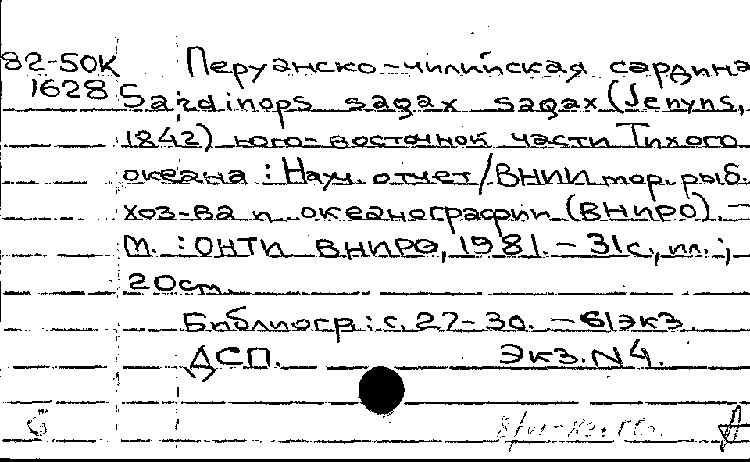 82-50К Перуанско-чилийская сардина
1628 Sardinops sagax sagax (Jenyns,
1842) юго-восточной части Тихого
океана : Науч. отчет / ВНИИ мор. рыб.
хоз-ва и океанографии (ВНИРО). —
М. : ОНТИ ВНИРО, 1981. – 31с., ил. ;
20 ст.
Библиогр : с. 27-30. – 61 экз.
ДСП. Экз. N 4.